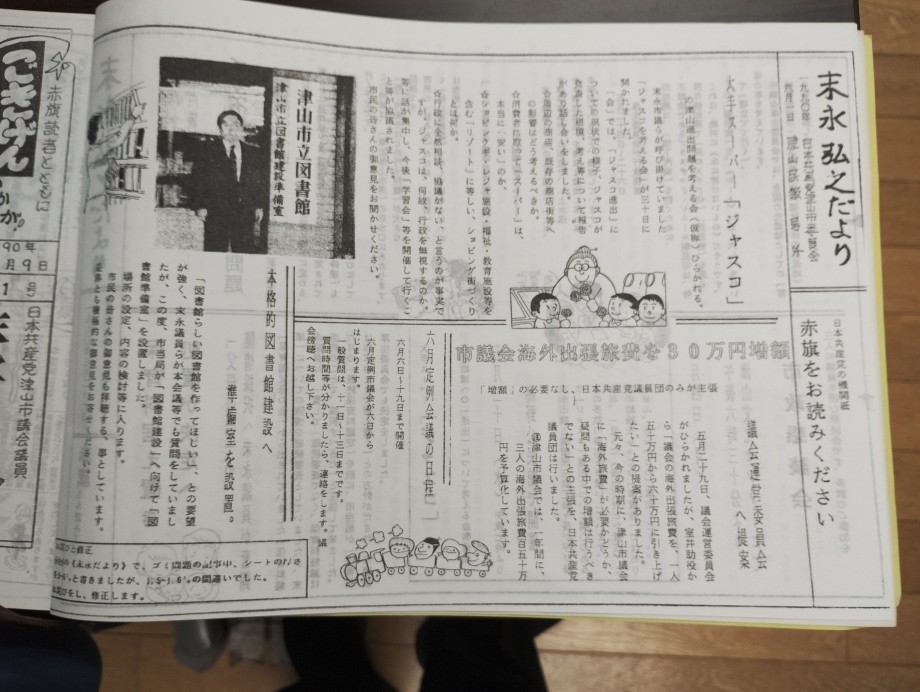 末永弘之だより
一九九〇年 日本共産党津山市委員会
六月一日
日本共産党の機関紙
赤旗をお読みください
大手スーパー「ジャスコ」
の津山進出問題を考える会(仮称)ひらかれる。
末永市議らが呼び掛けていました
「ジャスコを考える会」が三十日に
開かれました。
「会」では、「ジャスコ進出」に
ついての現状での様子、ジャスコが
進出した場合、考え等について報告
があり話し合いをしました。
☆周辺の商店、既存の商店街等へ
の影響はどう考えるべきか。
☆消費者に取って大スーパーは、
本当に「安い」のか、
☆ショッピング街・レジャー施設・福祉・教育施設等を
含む「リゾート」に等しい、ショッピング街づくり
とは何か。
☆行政に全然相談、協議がない、と言うのが事実で
すが、「ジャスコ」は、何故、行政を無視するのか。
等に話が集中し、今後「学習会」等を開催して行くこ
と等が協議されました。
市民の皆さんの御意見をお聞かせください。
津山市立図書館
津山市立図書館建設準備室
市議会海外出張旅費を30万円増額
「増額」の必要なし、日本共産党議員団のみが主張
議会運営委員会へ提案
五月二十九日、議会運営委員会
がひらかれましたが、室井助役か
ら「議会の海外出張旅費を、一人
五十万円から六十万円に引き上げ
たい」との提案がありました。
元々、今の時期に、津山市議会
に「海外旅費」が必要かどうか、
疑問もある中での増額は行うべき
でない」との主張を、日本共産党
議員団は行いました。
@津山市議会では、一年間に、
三人の海外出張旅費百五十万
円を予算化しています。
六月定例会議の日程
六月六日~十九日まで開催
六月定例市議会が六日から
はじまります。
一般質問は、十一日~十三日までです。
質問時間等が分かりましたら、連絡をします。議
会傍聴へお越し下さい。
本格的図書館建設へ
準備室を設置。
「図書館らしい図書館を作ってほしい」、との要望
が強く、末永議員らが本会議等でも質問をしていまし
たが、この度、市当局が「図書館建設」へ向けて「図
書館準備室」を設置しました。
場所の設定、内容の検討等に入ります。
市民の皆さんの御意見も拝聴する、事としています。
修正
《末永だより》で、ゴミ問題の記事中、シートの
と書きましたが、の間違いでした。
し、修正します。
ごきげん
赤旗読者とともに
90年
月9日
1号
日本共産党津山市議会議員